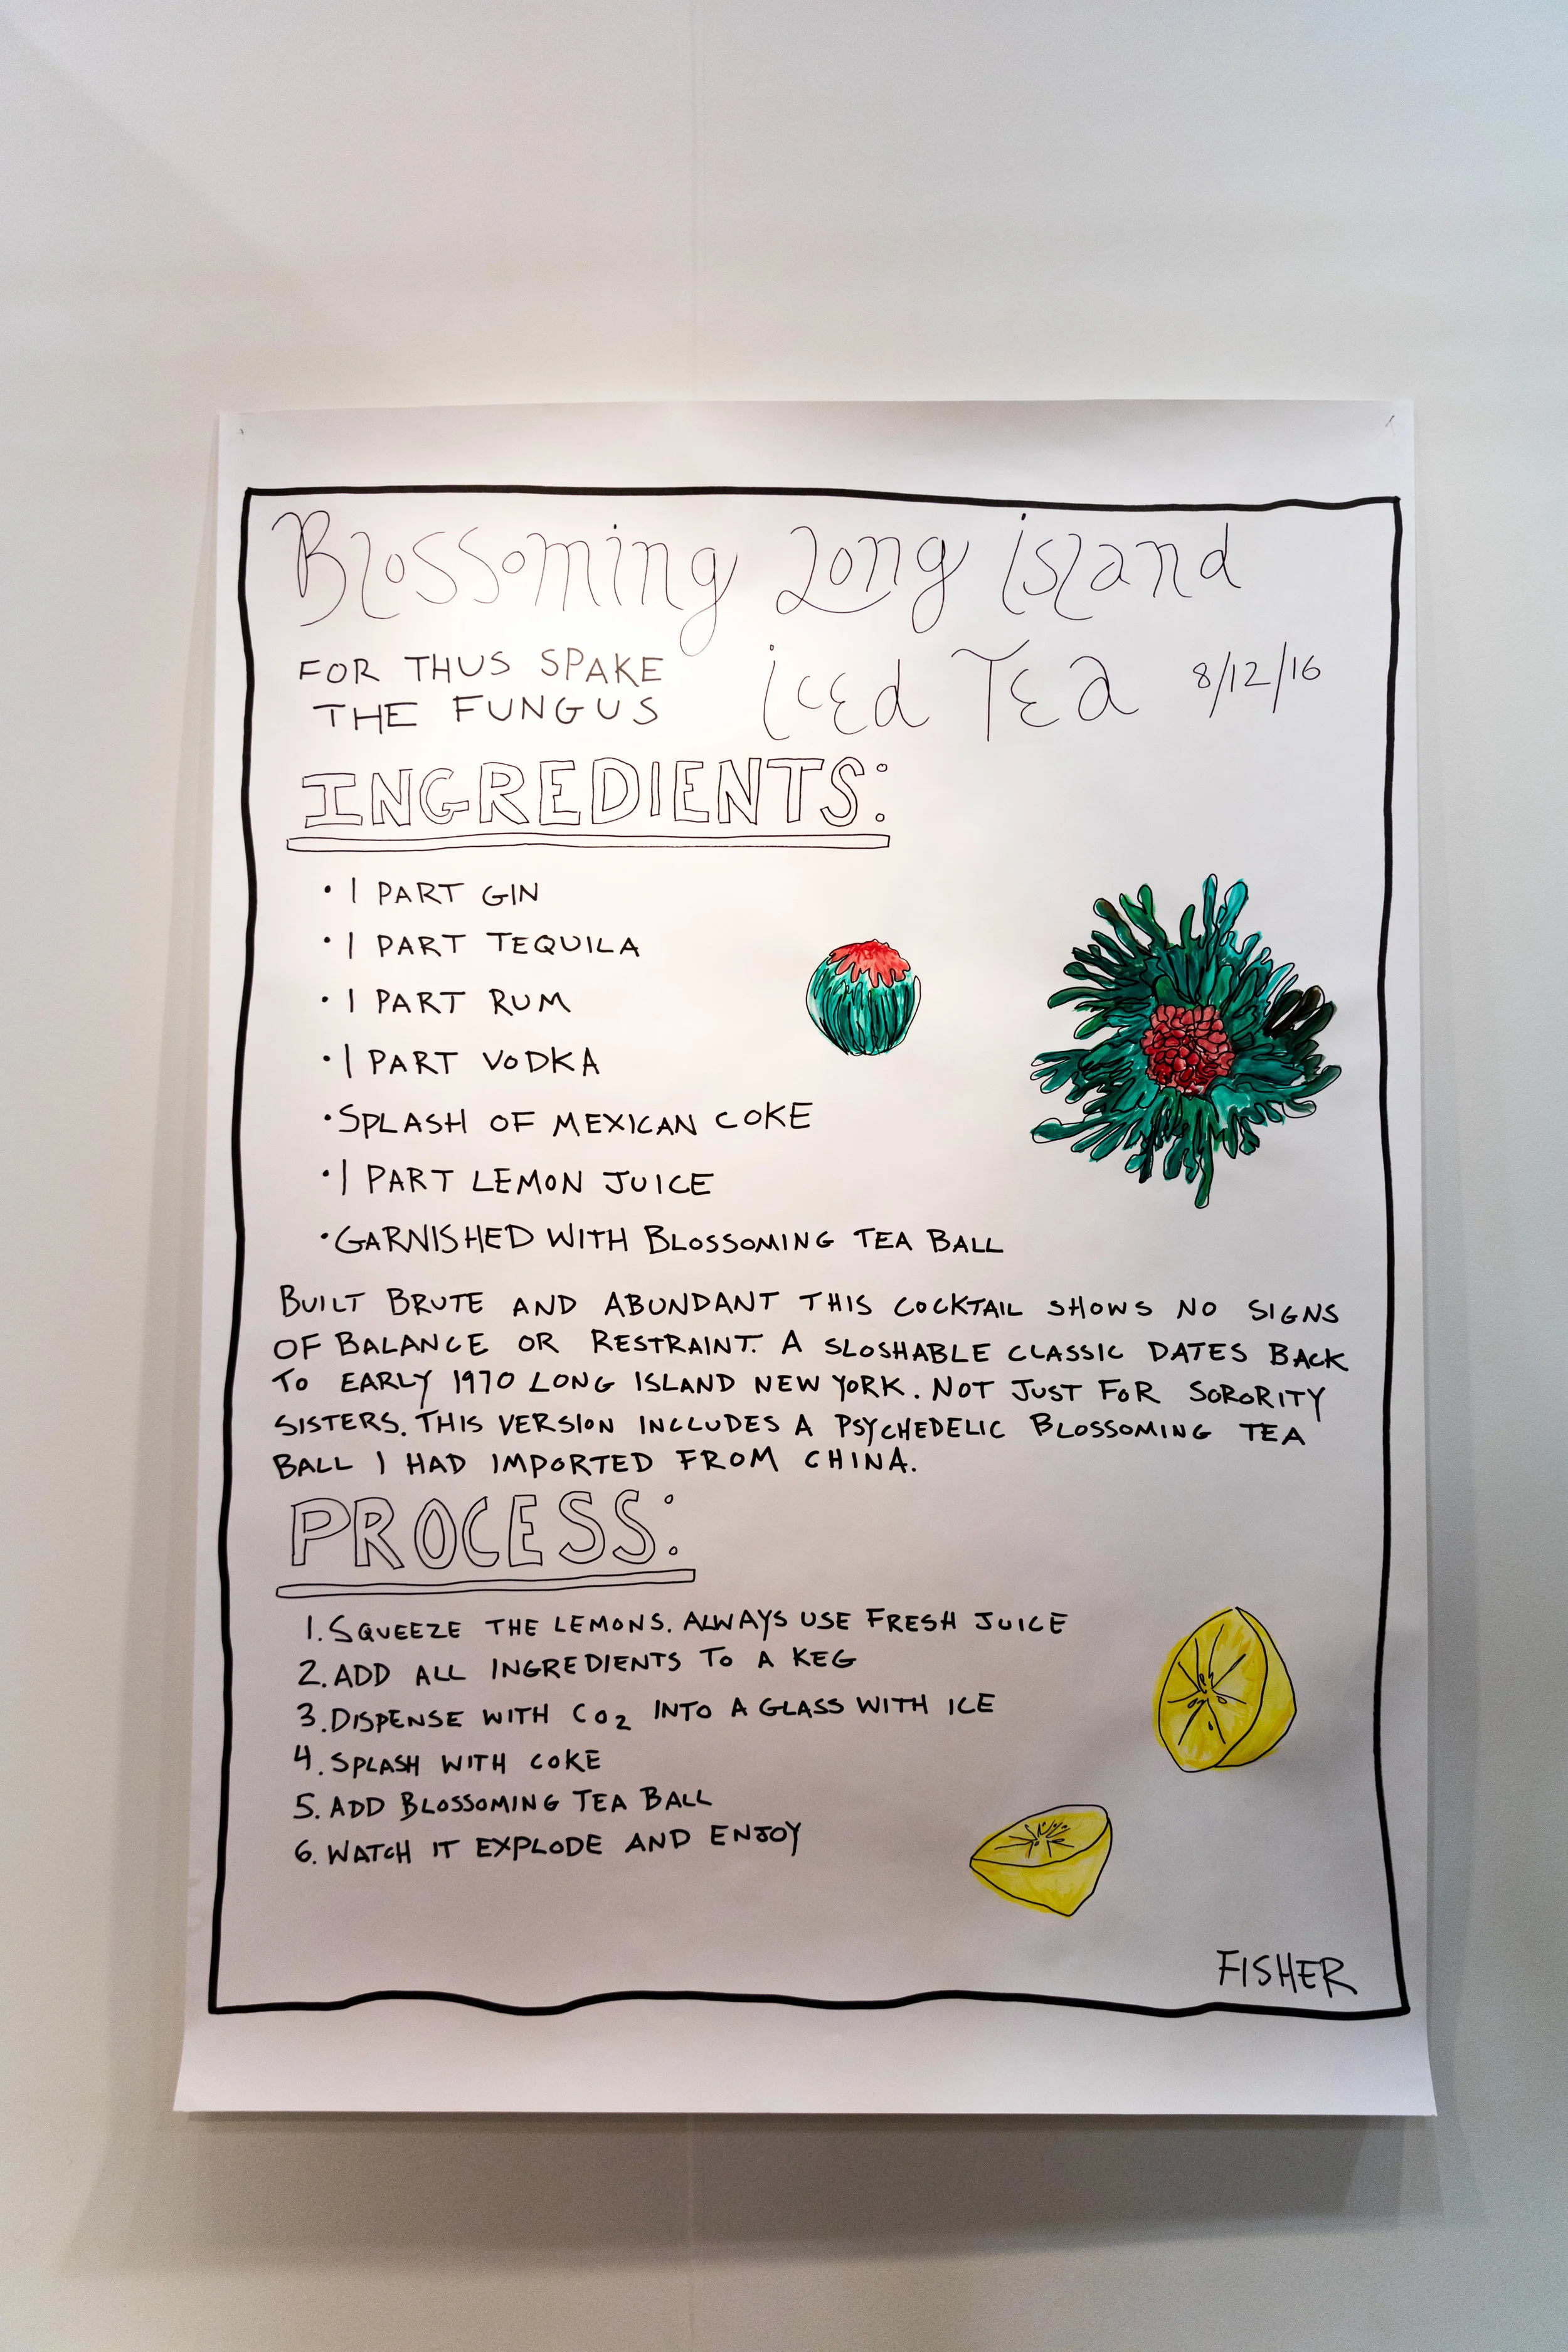 Blossoming Long Island
Iced Tea 8/12/16
FOR THUS SPAKE
THE FUNGUS
INGREDIENTS:
• 1 PART GIN
• 1 PART TEQUILA
• 1 PART RUM
• 1 PART VODKA
• SPLASH OF MEXICAN COKE
• 1 PART LEMON JUICE
• GARNISHED WITH BLOSSOMING TEA BALL
BUILT BRUTE AND ABUNDANT THIS COCKTAIL SHOWS NO SIGNS
OF BALANCE OR RESTRAINT. A SLOSHABLE CLASSIC DATES BACK
TO EARLY 1970 LONG ISLAND NEW YORK. NOT JUST FOR SORORITY
SISTERS. THIS VERSION INCLUDES A PSYCHEDELIC BLOSSOMING TEA
BALL I HAD IMPORTED FROM CHINA.
PROCESS:
1. SQUEEZE THE LEMONS. ALWAYS USE FRESH JUICE
2. ADD ALL INGREDIENTS TO A KEG
3. DISPENSE WITH CO₂ INTO A GLASS WITH ICE
4. SPLASH WITH COKE
5. ADD BLOSSOMING TEA BALL
6. WATCH IT EXPLODE AND ENJOY
FISHER